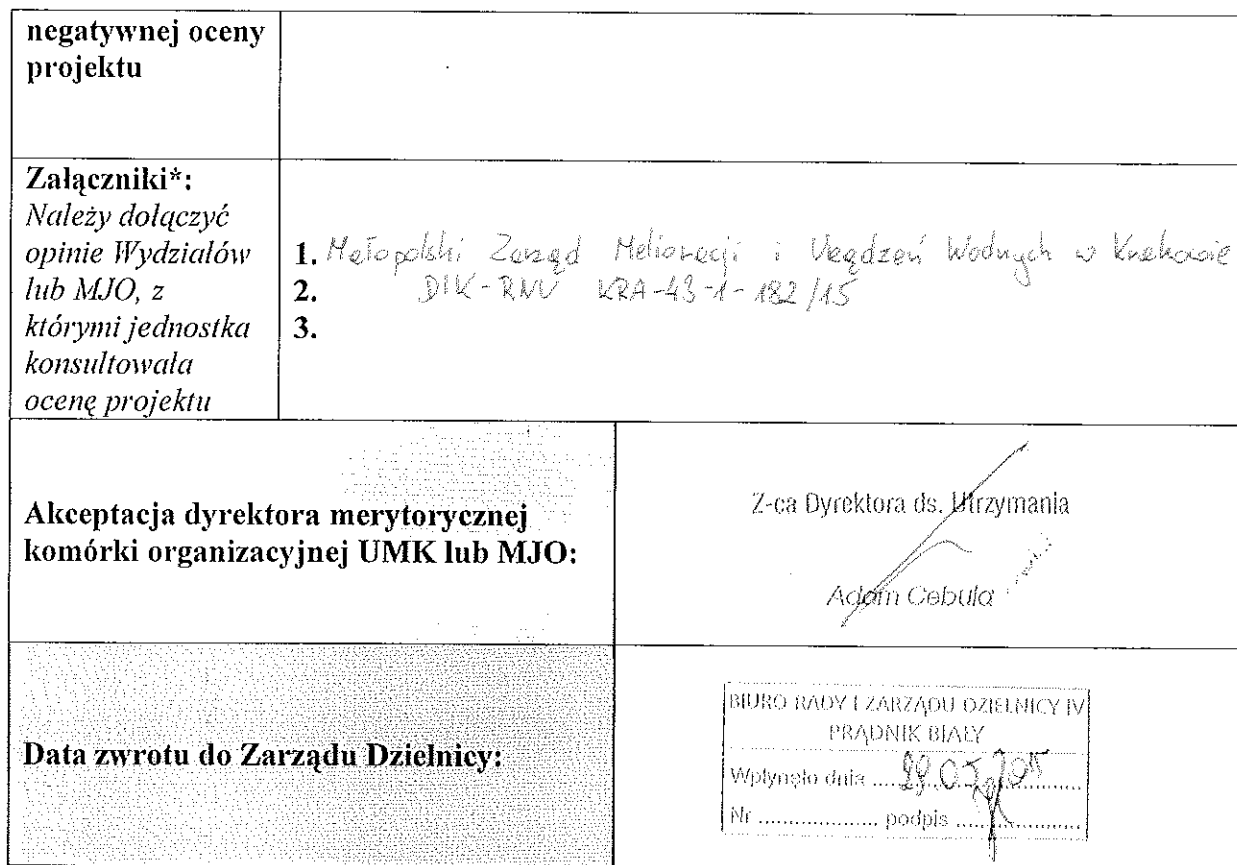 negatywnej oceny
projektu
Załączniki*:
Należy dołączyć
opinie Wydziałów
lub MJO, z
którymi jednostka
konsultowała
ocenę projektu
1. Małopolski Zarząd Melioracji i Urządzeń Wodnych w Krakowie
2. KRA-43-1-182/15
3.
Akceptacja dyrektora merytorycznej
komórki organizacyjnej UMK lub MJO:
Z-ca Dyrektora ds. Utrzymania
Adam Cebula
Data zwrotu do Zarządu Dzielnicy:
BIURO RADY I ZARZĄDU DZIELNICY IV
PRĄDNIK BIAŁY
Wpłynęło dnia ....................
Nr .................. podpis ..................